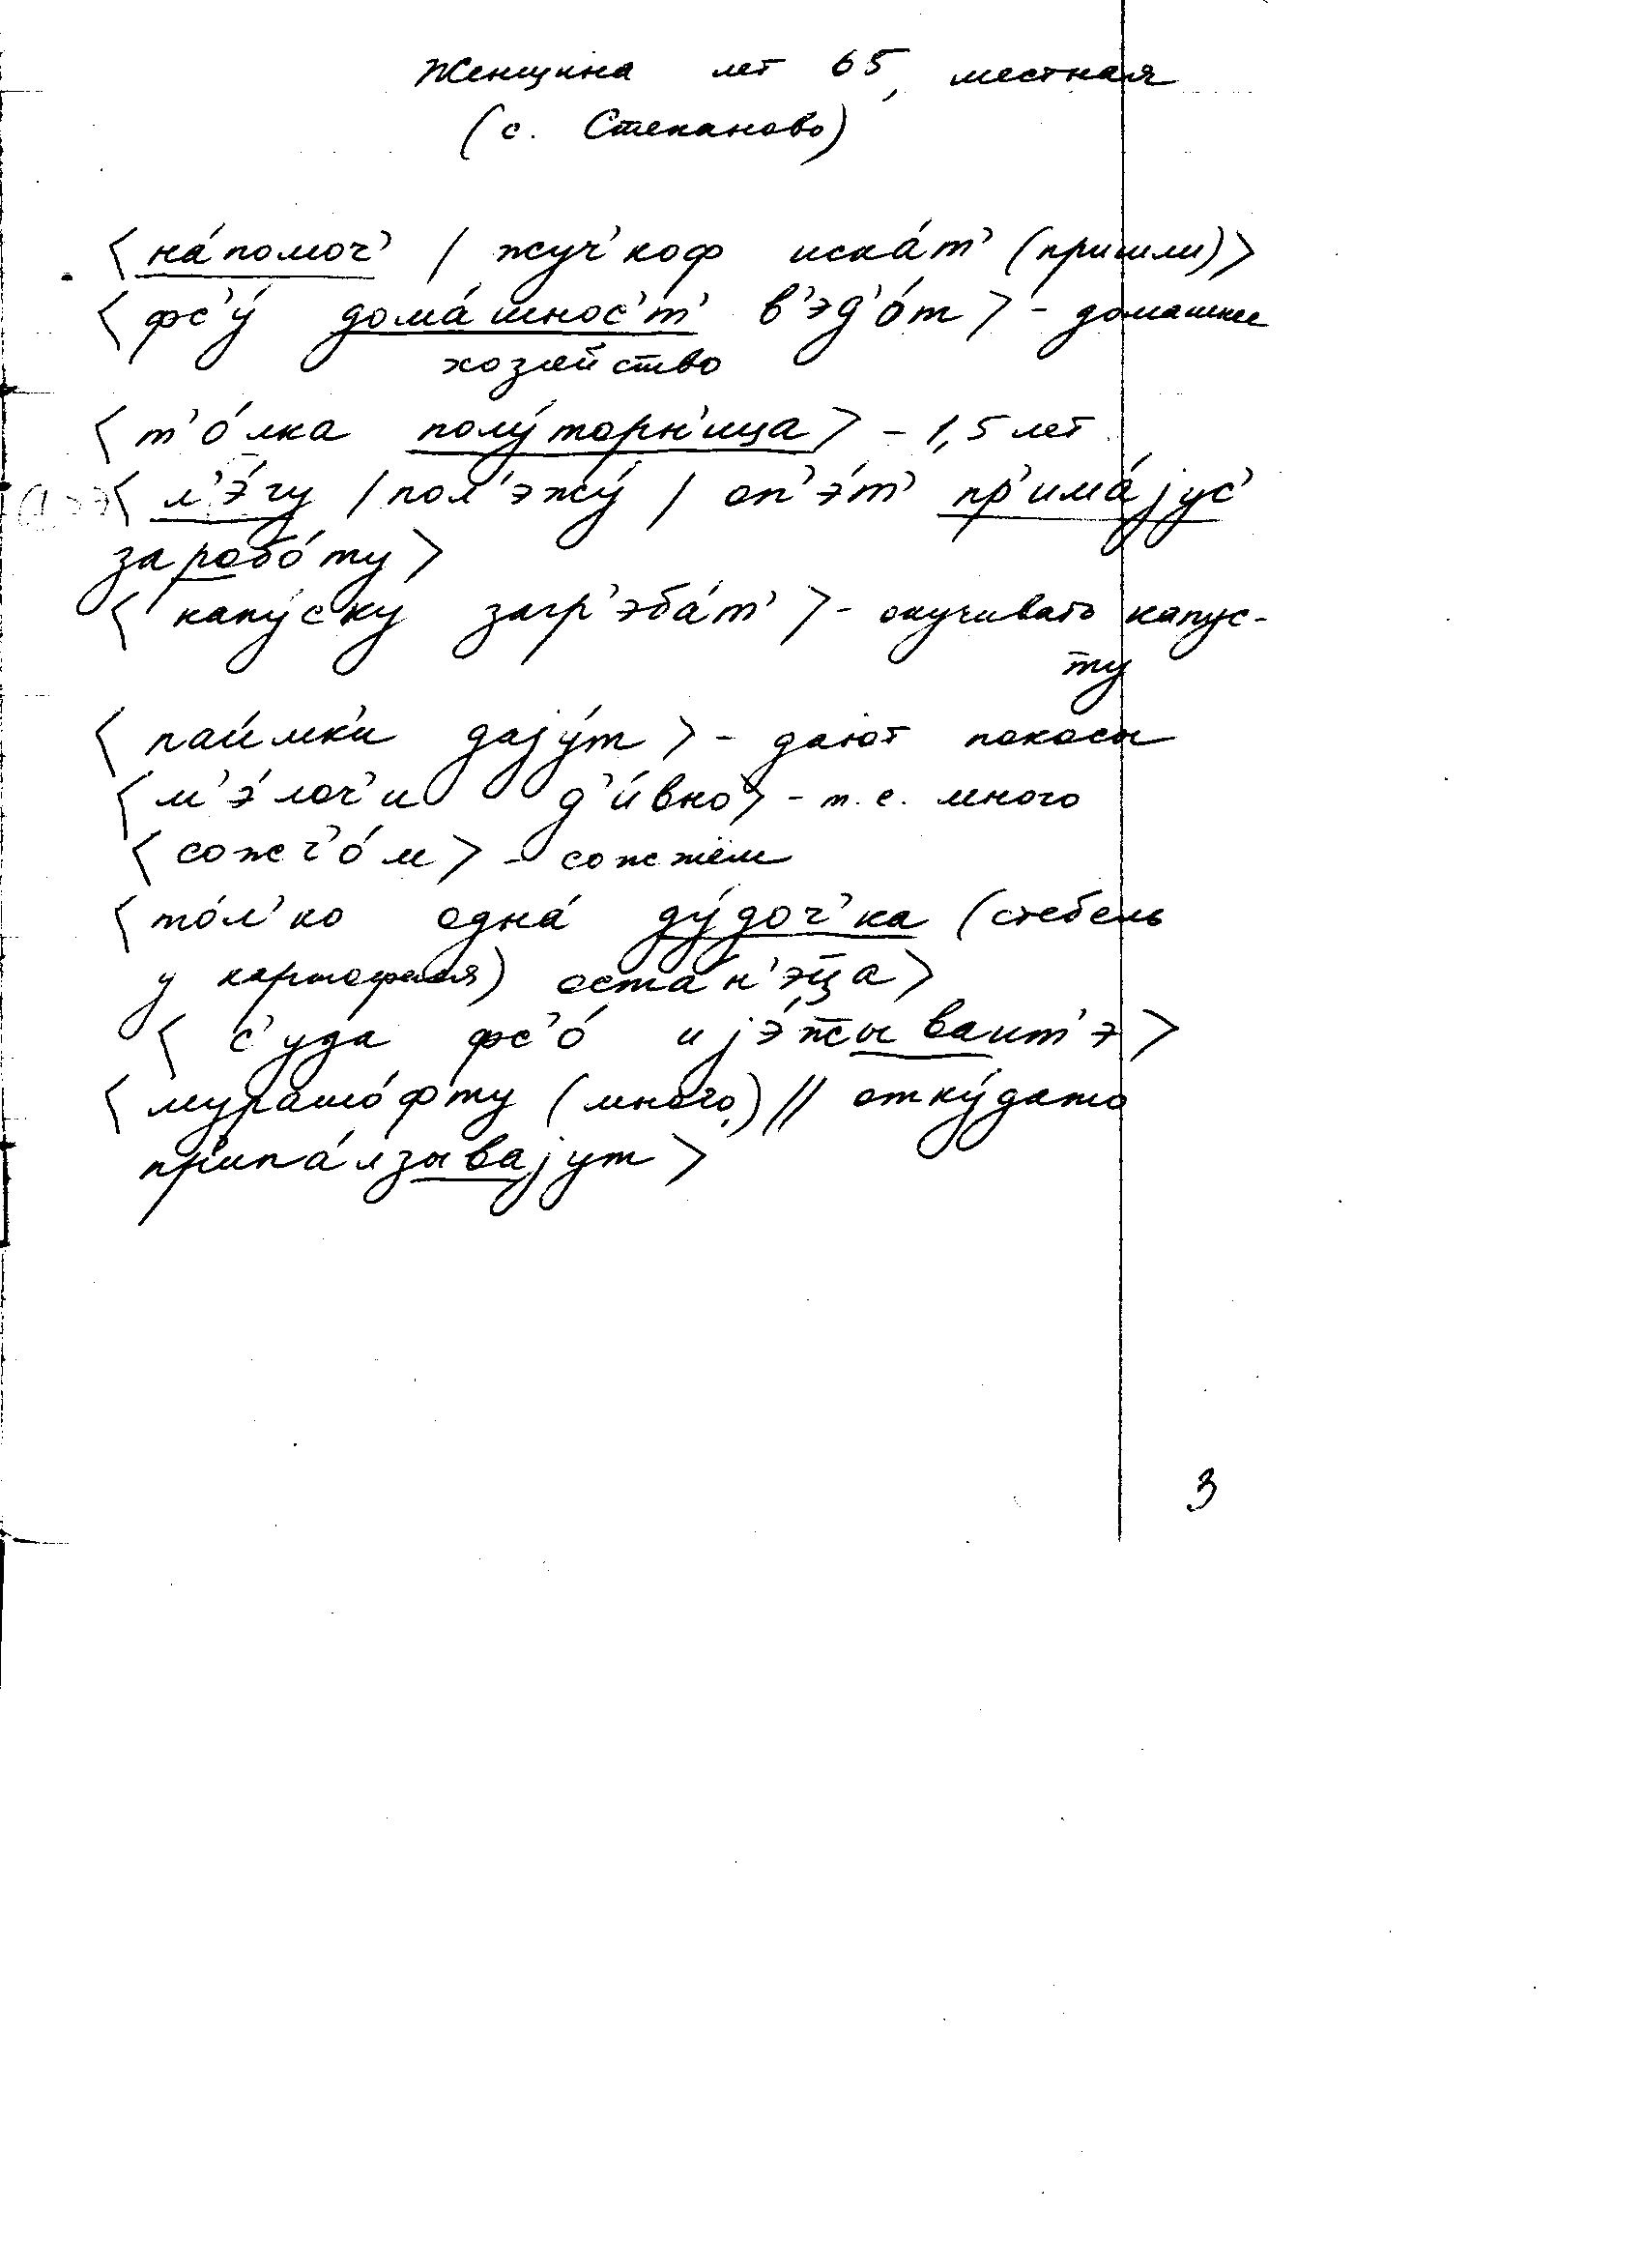 Женщина лет 65, местная
(с. Степаново)
⟨на́помоч' / жуч'коф иска́т' (пришли)⟩
⟨фс'у́ дома́шнос'т' в'эд'о́т⟩ - домашнее
хозяйство
⟨т'о́лка полу́торн'ица⟩ - 1,5 лет
⟨л'э́гу / пол'эжу́ / оп'э́т' пр'има́jус'
за робо́ту⟩
⟨капу́ску загр'эба́т'⟩ - окучивать капус-
ту
⟨паи́мк'и даjу́т⟩ - дают покосы
⟨м'э́лоч'и д'и́вно⟩ - т.е. много
⟨сожг'о́м⟩ - сожжём
⟨то́л'ко одна́ ду́доч'ка (стебель
у картофеля) оста́н'эца⟩
⟨с'уда фс'о́ иjэ́жывант'э⟩
⟨мурашо́фту (много) // отку́дато
пр'ипа́лзываjут⟩
3